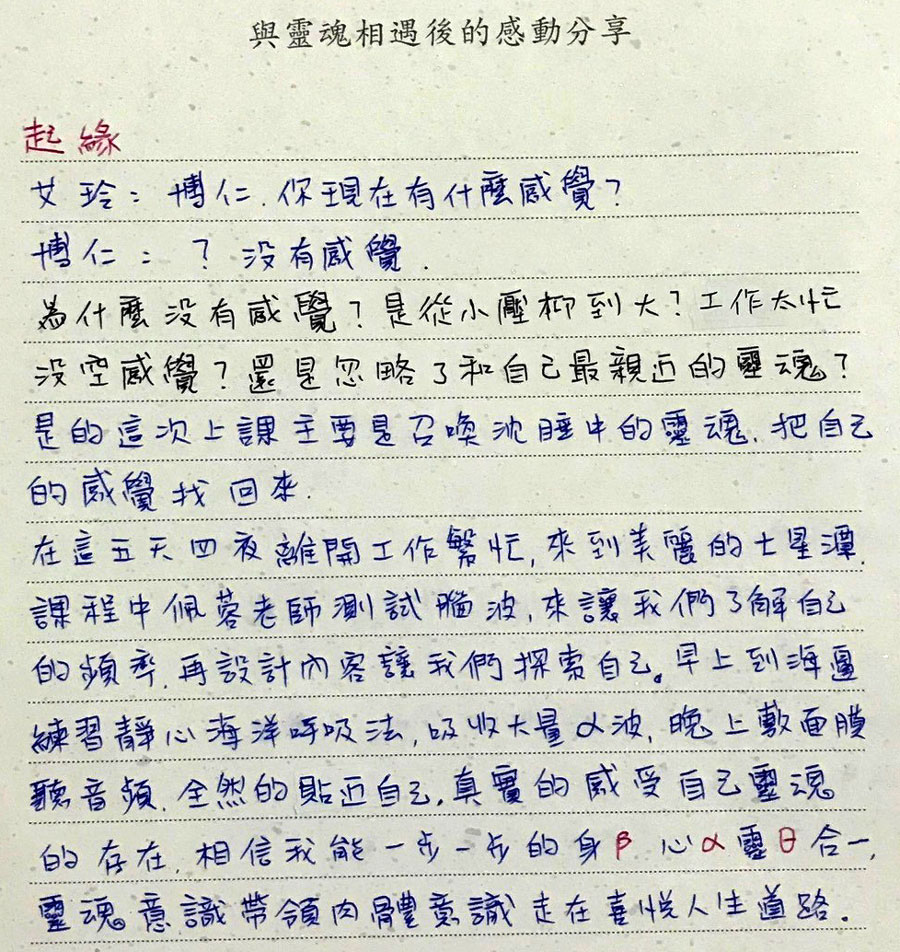 與靈魂相遇後的感動分享
起緣
艾玲：博仁．你現在有什麼感覺？
博仁：？沒有感覺．
為什麼沒有感覺？是從小壓抑到大？工作太忙
沒空感覺？還是忽略了和自己最親近的靈魂？
是的這次上課主要是召喚沈睡中的靈魂．把自己
的感覺找回來．
在這五天四夜離開工作繁忙，來到美麗的七星潭．
課程中佩蓉老師測試腦波，來讓我們了解自己
的頻率．再設計內容讓我們探索自己。早上到海邊
練習靜心海洋呼吸法，吸收大量α波，晚上敷面膜
聽音頻．全然的貼近自己，真實的感受自己靈魂
的存在．相信我能一步一步的身β 心α靈θ合一，
靈魂意識帶領肉體意識走在喜悅人生道路．